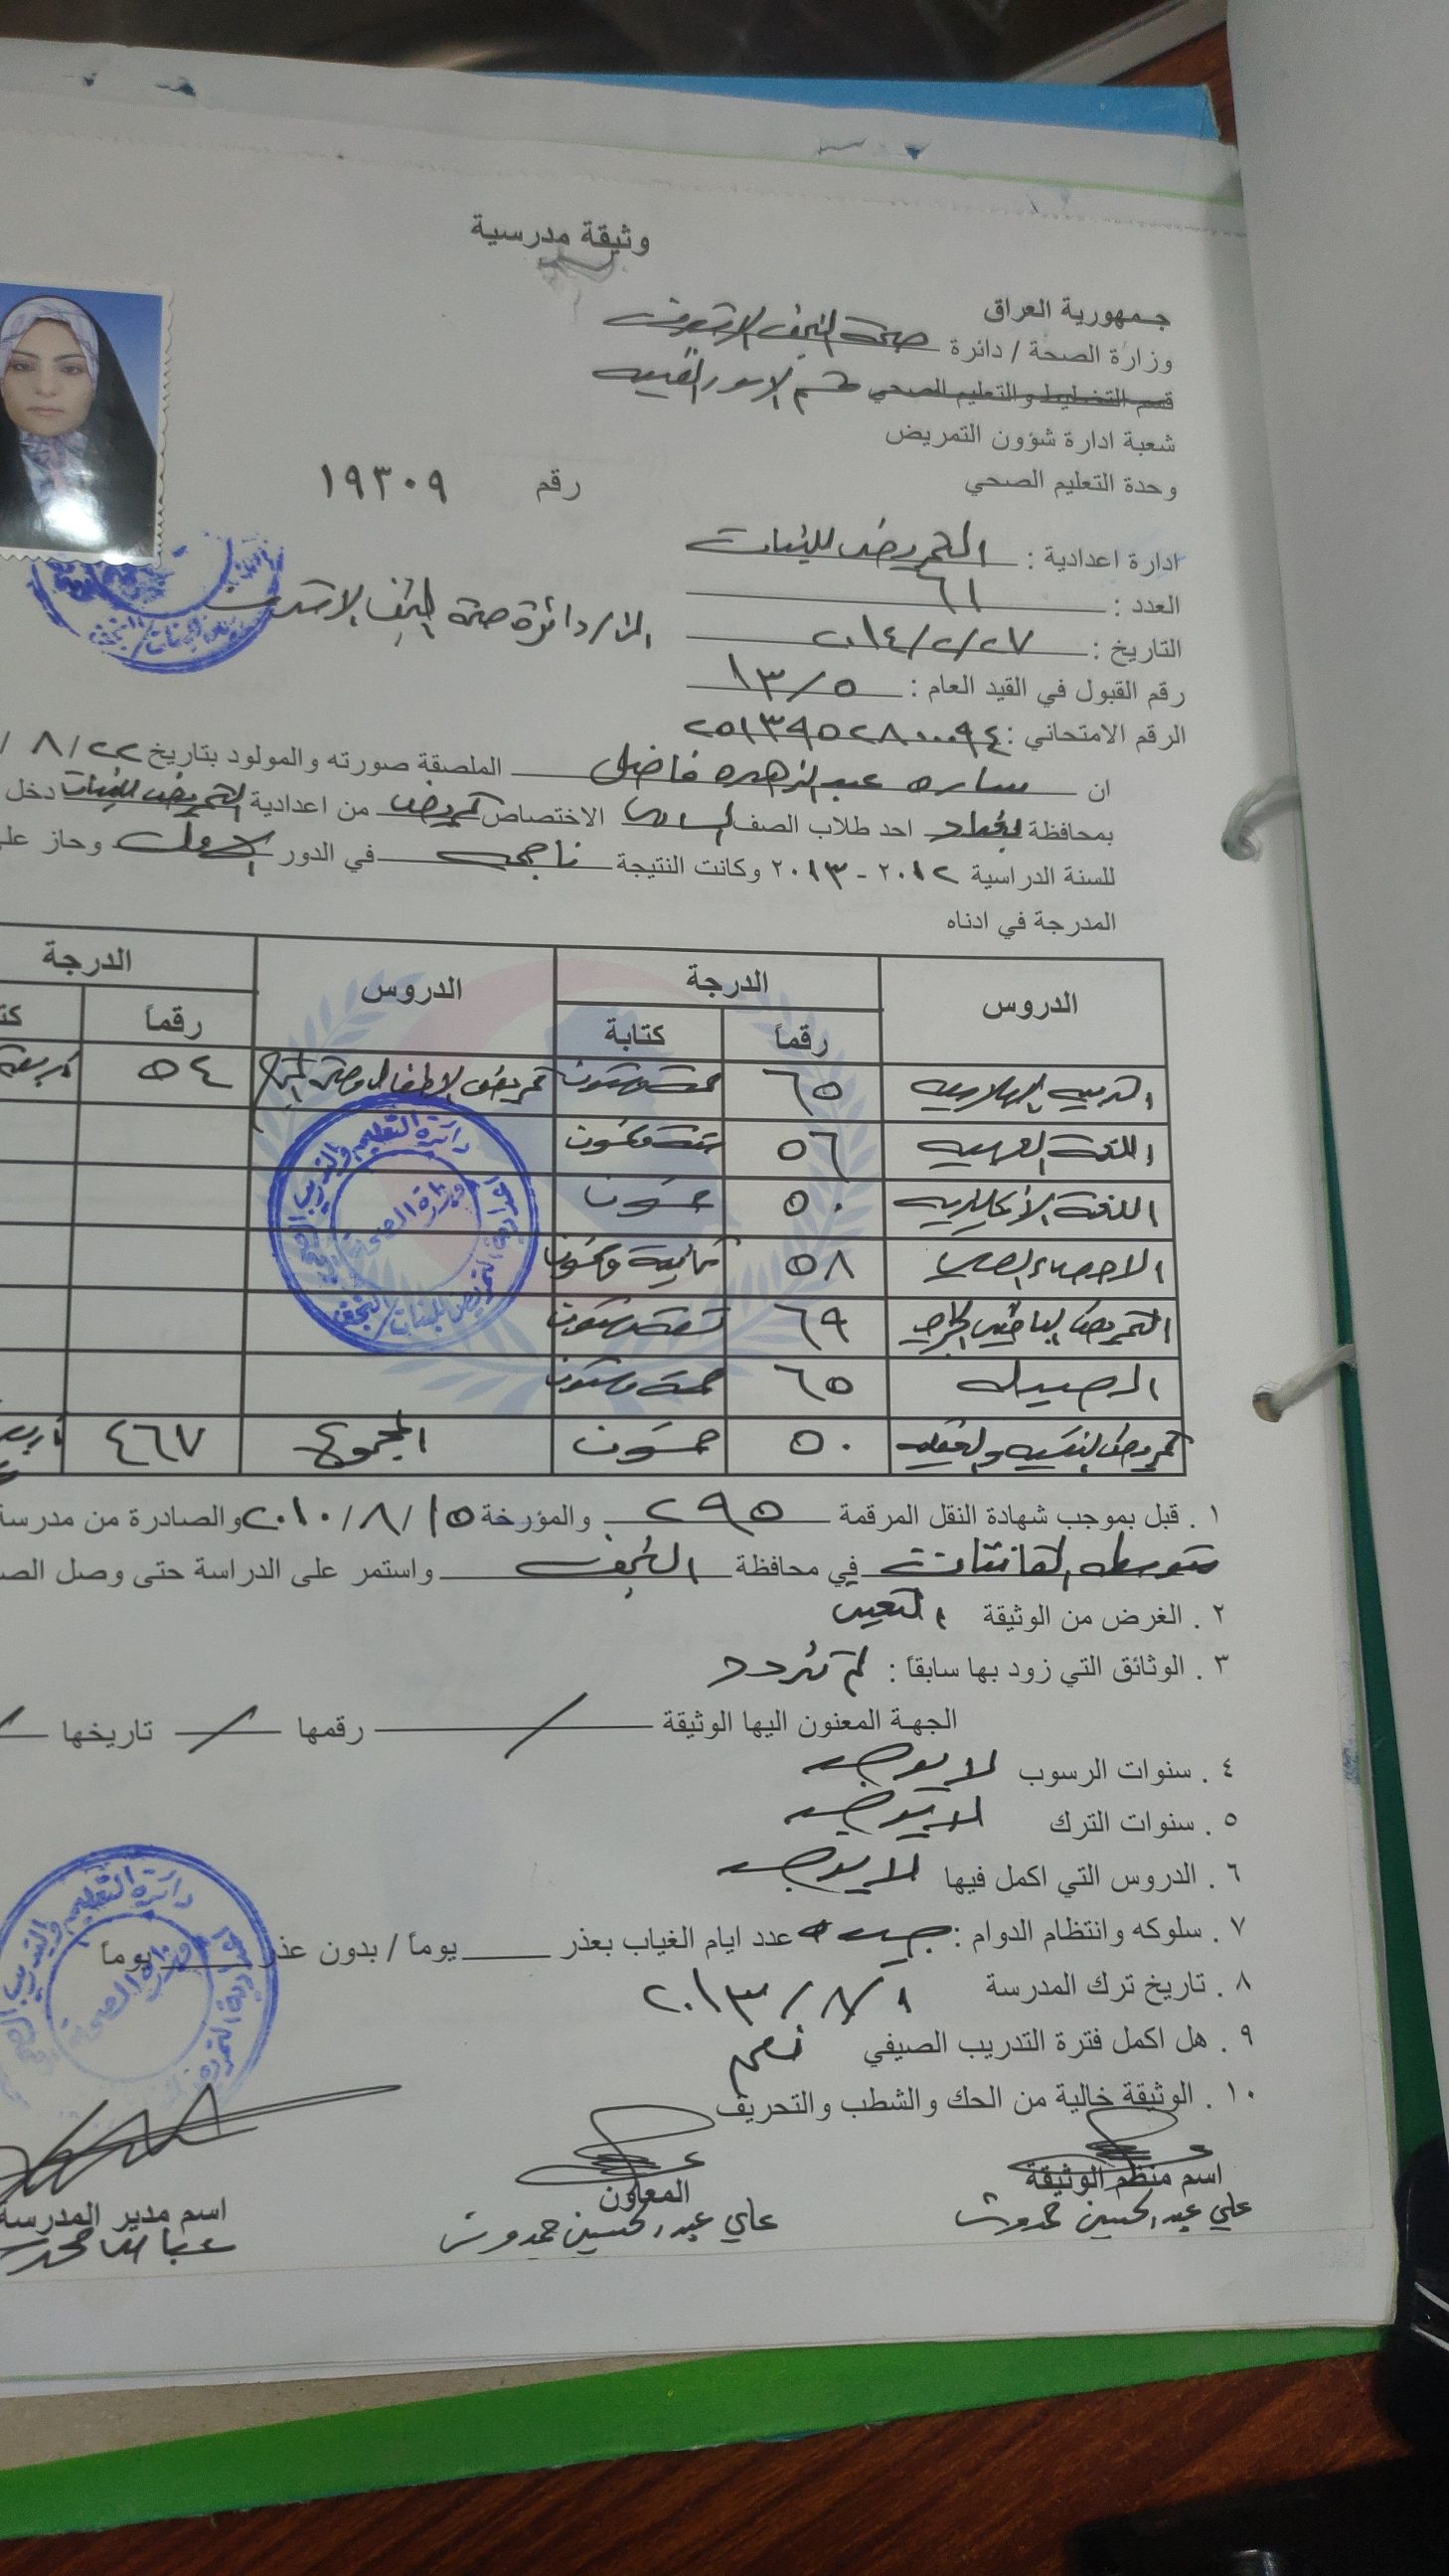 وثيقة مدرسية
جمهورية العراق
وزارة الصحة / دائرة صحة النجف الاشرف
قسم التخطيط والتعليم الصحي قسم الامور الفنية
شعبة ادارة شؤون التمريض
وحدة التعليم الصحي
رقم ١٩٣٠٩
ادارة اعدادية : التمريض للبنات
العدد : ٦١
الى/ دائرة صحة النجف الاشرف
التاريخ : ٢٠١٤/٢/٢٧
رقم القبول في القيد العام : ١٣/٥
الرقم الامتحاني : ٢٥١٣٩٥٢٨٠٠٠٩٤
ان ساره عبد الزهره فاضل الملصقة صورته والمولود بتاريخ ٨/٢٢ /
بمحافظة بغداد احد طلاب الصف السادس الاختصاص تمريض من اعدادية التمريض للبنات دخل
للسنة الدراسية ٢٠١٢ - ٢٠١٣ وكانت النتيجة ناجحه في الدور الاول وحاز على
المدرجة في ادناه
الدروس الدرجة الدروس الدرجة
رقماً كتابة رقماً
التربيه الاسلاميه ٦٥ خمسة وستون تمريض الاطفال وصحة المجتمع ٥٤ اربعة
اللغة العربيه ٥٦ ستة وخمسون
اللغة الأنكليزيه ٥٠ خمسون
الاحصاء الصحي ٥٨ ثمانية وخمسون
التمريض الباطني الجراحي ٦٩ تسعة وستون
الصيدله ٦٥ خمسة وستون
تمريض النفسيه والعقليه ٥٠ خمسون المجموع ٤٦٧
دائرة التعليم والتدريب الصحي
وزارة الصحة
اعدادية التمريض للبنات / النجف
١ . قبل بموجب شهادة النقل المرقمة ٢٩٥ والمؤرخة ٢٠١٠/٨/١٥ والصادرة من مدرسة
متوسطه القانتات في محافظة النجف واستمر على الدراسة حتى وصل
٢ . الغرض من الوثيقة التعيين
٣ . الوثائق التي زود بها سابقاً : لم تزود
الجهة المعنون اليها الوثيقة / رقمها / تاريخها
٤ . سنوات الرسوب لا يوجد
٥ . سنوات الترك لا يوجد
٦ . الدروس التي اكمل فيها لا يوجد
٧ . سلوكه وانتظام الدوام : جيده عدد ايام الغياب بعذر يوماً / بدون عذر يوماً
٨ . تاريخ ترك المدرسة ٢٠١٣/٨/١
٩ . هل اكمل فترة التدريب الصيفي نعم
١٠ . الوثيقة خالية من الحك والشطب والتحريف
دائرة التعليم والتدريب
وزارة الصحة
اسم منظم الوثيقة المعاون اسم مدير المدرسة
علي عبد الحسين حمدوش علي عبد الحسين حمدوش